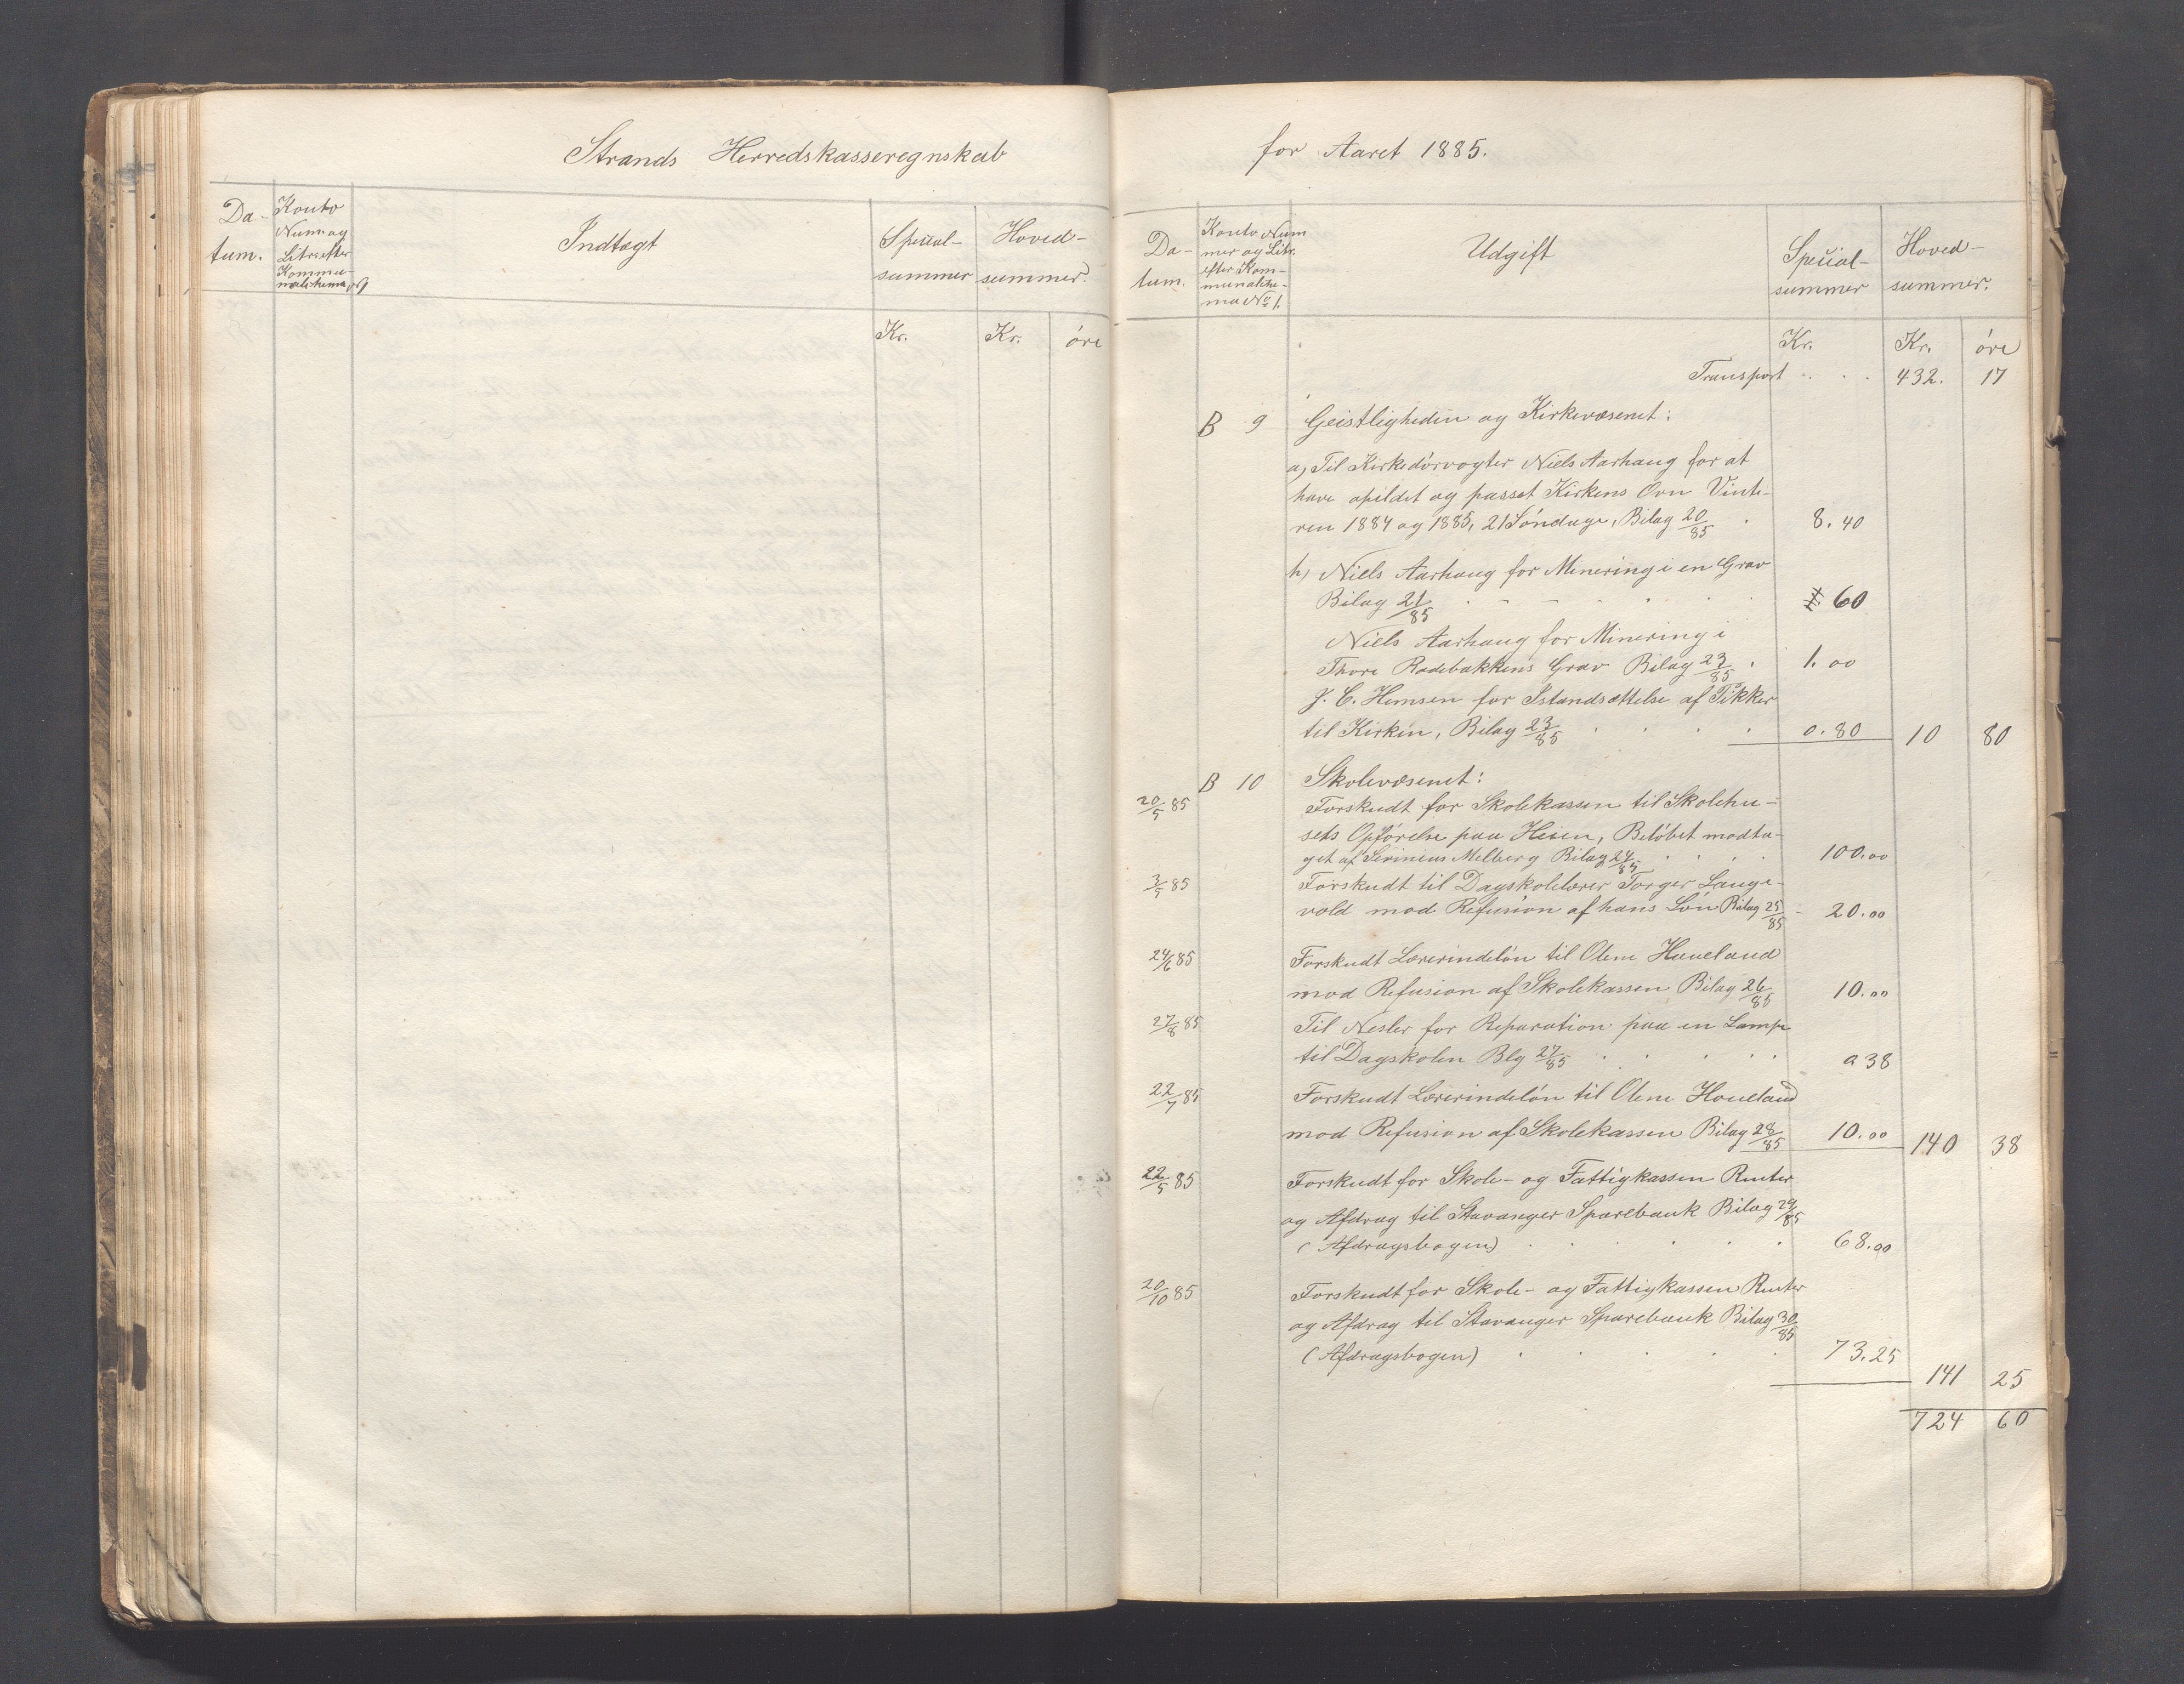 Strands Herredskasseregnskab
Da-
tum.
Konto
Num og
Litr. efter
Kommu-
nalschema
Indtægt
Special-
summer
Hoved-
summer.
Kr.
Kr.
öre
for Aaret 1885.
Da-
tum.
Konto Num
mer og Litr.
efter Kom-
munalsche-
ma No 1.
Udgift
Special-
summer
Hoved-
summer.
Kr.
Kr.
öre
Transport . . . 432. 17
B 9 Geistligheden og Kirkevæsenet:
a, Til Kirkedörvogter Niels Aarhaug for at
have opildet og passet Kirkens Ovn Vinte-
ren 1884 og 1885, 21 Söndage, Bilag 20/85 . 8.40
h, Niels Aarhaug for Minering i en Grav
Bilag 21/85 . . . 60
Niels Aarhaug for Minering i
Thore Rodebakkens Grav Bilag 23/85 . 1.00
J. C. Hemsen for Istandsættelse af Pikker
til Kirken, Bilag 23/85 . . . . 0.80 10 80
B 10 Skolevæsenet:
20/5 85 Forskudt for Skolekassen til Skolehu-
sets Opförelse paa Heien, Belöbet modta-
get af Serinius Melberg Bilag 24/85 . . . 100.00
3/5 85 Forskudt til Dagskolelærer Torger Lange-
vold mod Refusion af hans Lön Bilag 25/85 - 20.00
24/6 85 Forskudt Lærerindelön til Olene Haueland
mod Refusion af Skolekassen Bilag 26/85 10.00
27/8 85 Til Nesler for Reparation paa en Lampe
til Dagskolen Blg 27/85 . . . . . 0 38
22/7 85 Forskudt Lærerindelön til Olene Houeland
mod Refusion af Skolekassen Bilag 28/85 10.00 140 38
22/5 85 Forskudt for Skole- og Fattigkassen Renter
og Afdrag til Stavanger Sparebank Bilag 29/85
(Afdragsbogen) . . . . . 68.00
20/10 85 Forskudt for Skole- og Fattigkassen Renter
og Afdrag til Stavanger Sparebank Bilag 30/85
(Afdragsbogen) . . . . . 73.25
141 25
724 60